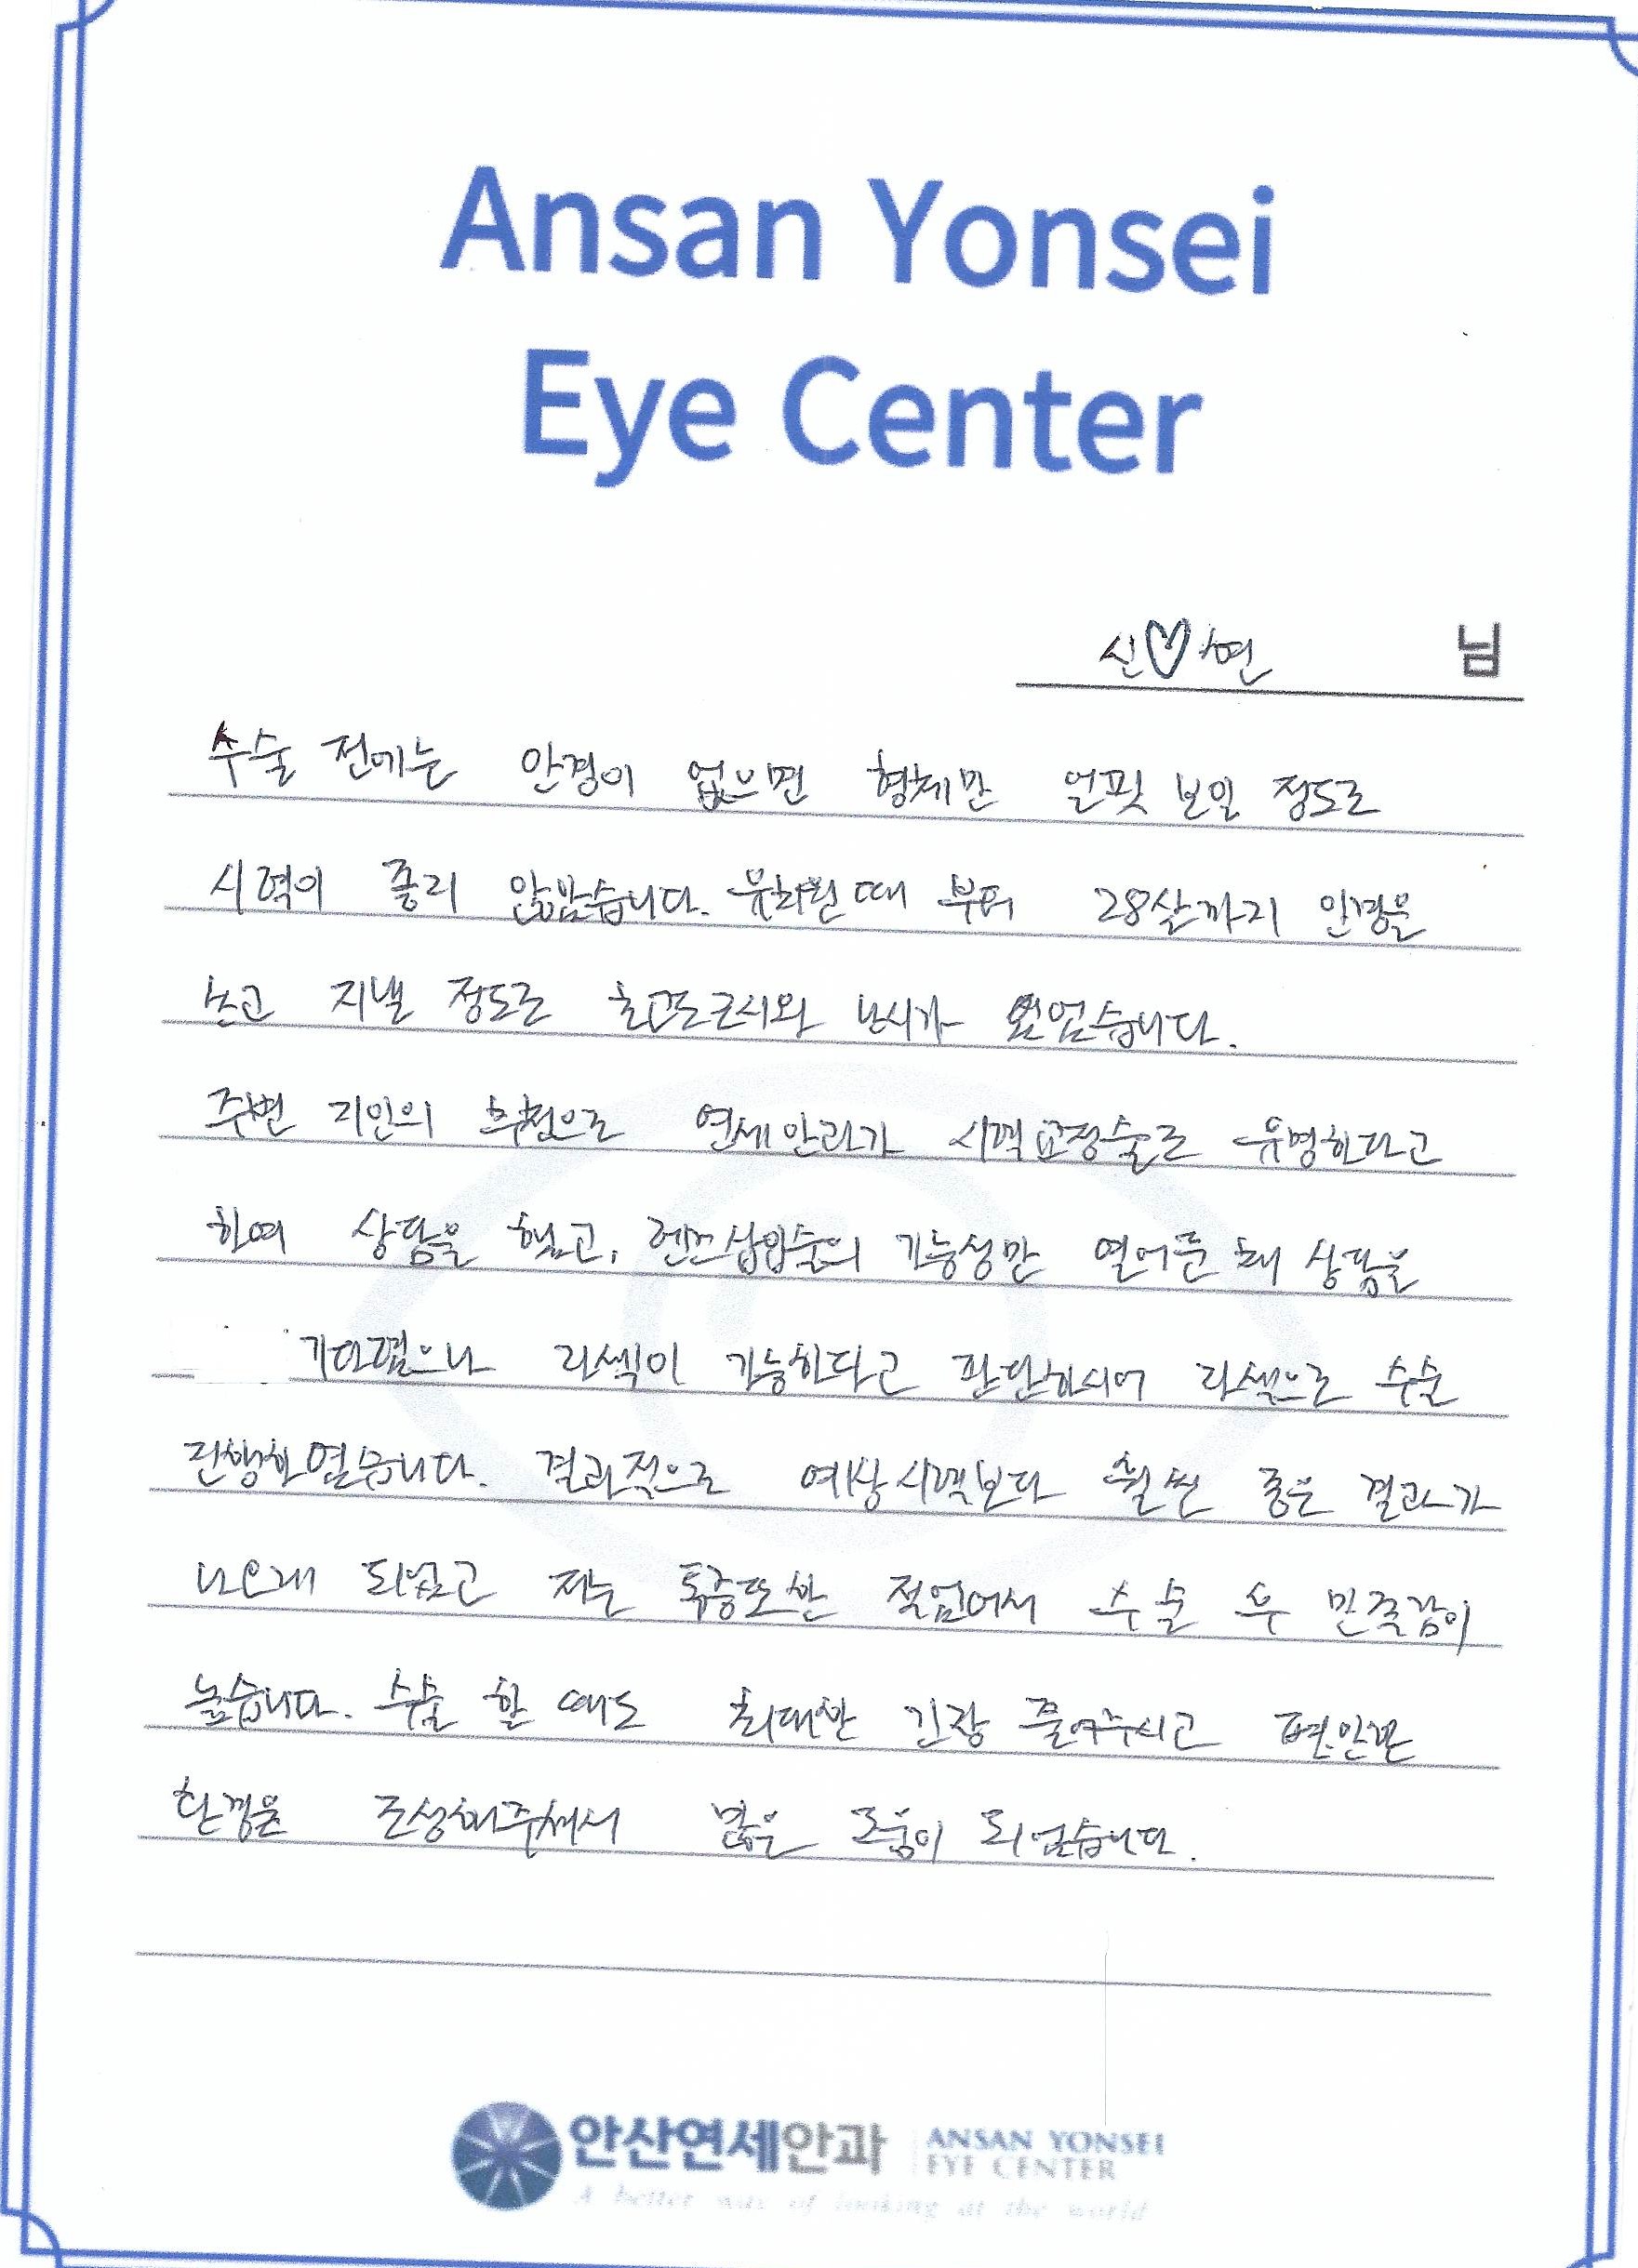 Ansan Yonsei
Eye Center
신♡연 님
수술 전에는 안경이 없으면 형체만 얼핏 보일 정도로
시력이 좋지 않았습니다. 유치원 때 부터 28살까지 안경을
쓰고 지낼 정도로 초고도근시와 난시가 있었습니다.
주변 지인의 추천으로 연세안과가 시력교정술로 유명하다고
하여 상담을 했고, 렌즈삽입술의 가능성만 열어둔 채 상담을
기다렸으나 라섹이 가능하다고 판단하시어 라섹으로 수술
진행하였습니다. 결과적으로 예상시력보다 훨씬 좋은 결과가
나오게 되었고 저는 통증또한 적었어서 수술 후 만족감이
높습니다. 수술 할 때도 최대한 긴장 풀어주시고 편안한
환경을 조성해주셔서 많은 도움이 되었습니다.
안산연세안과 ANSAN YONSEI
EYE CENTER
A better way of looking at the world